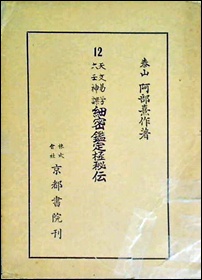 泰山 阿部熹作著
12
天文易学
六壬神課
細密鑑定極秘伝
株式
会社
京都書院刊